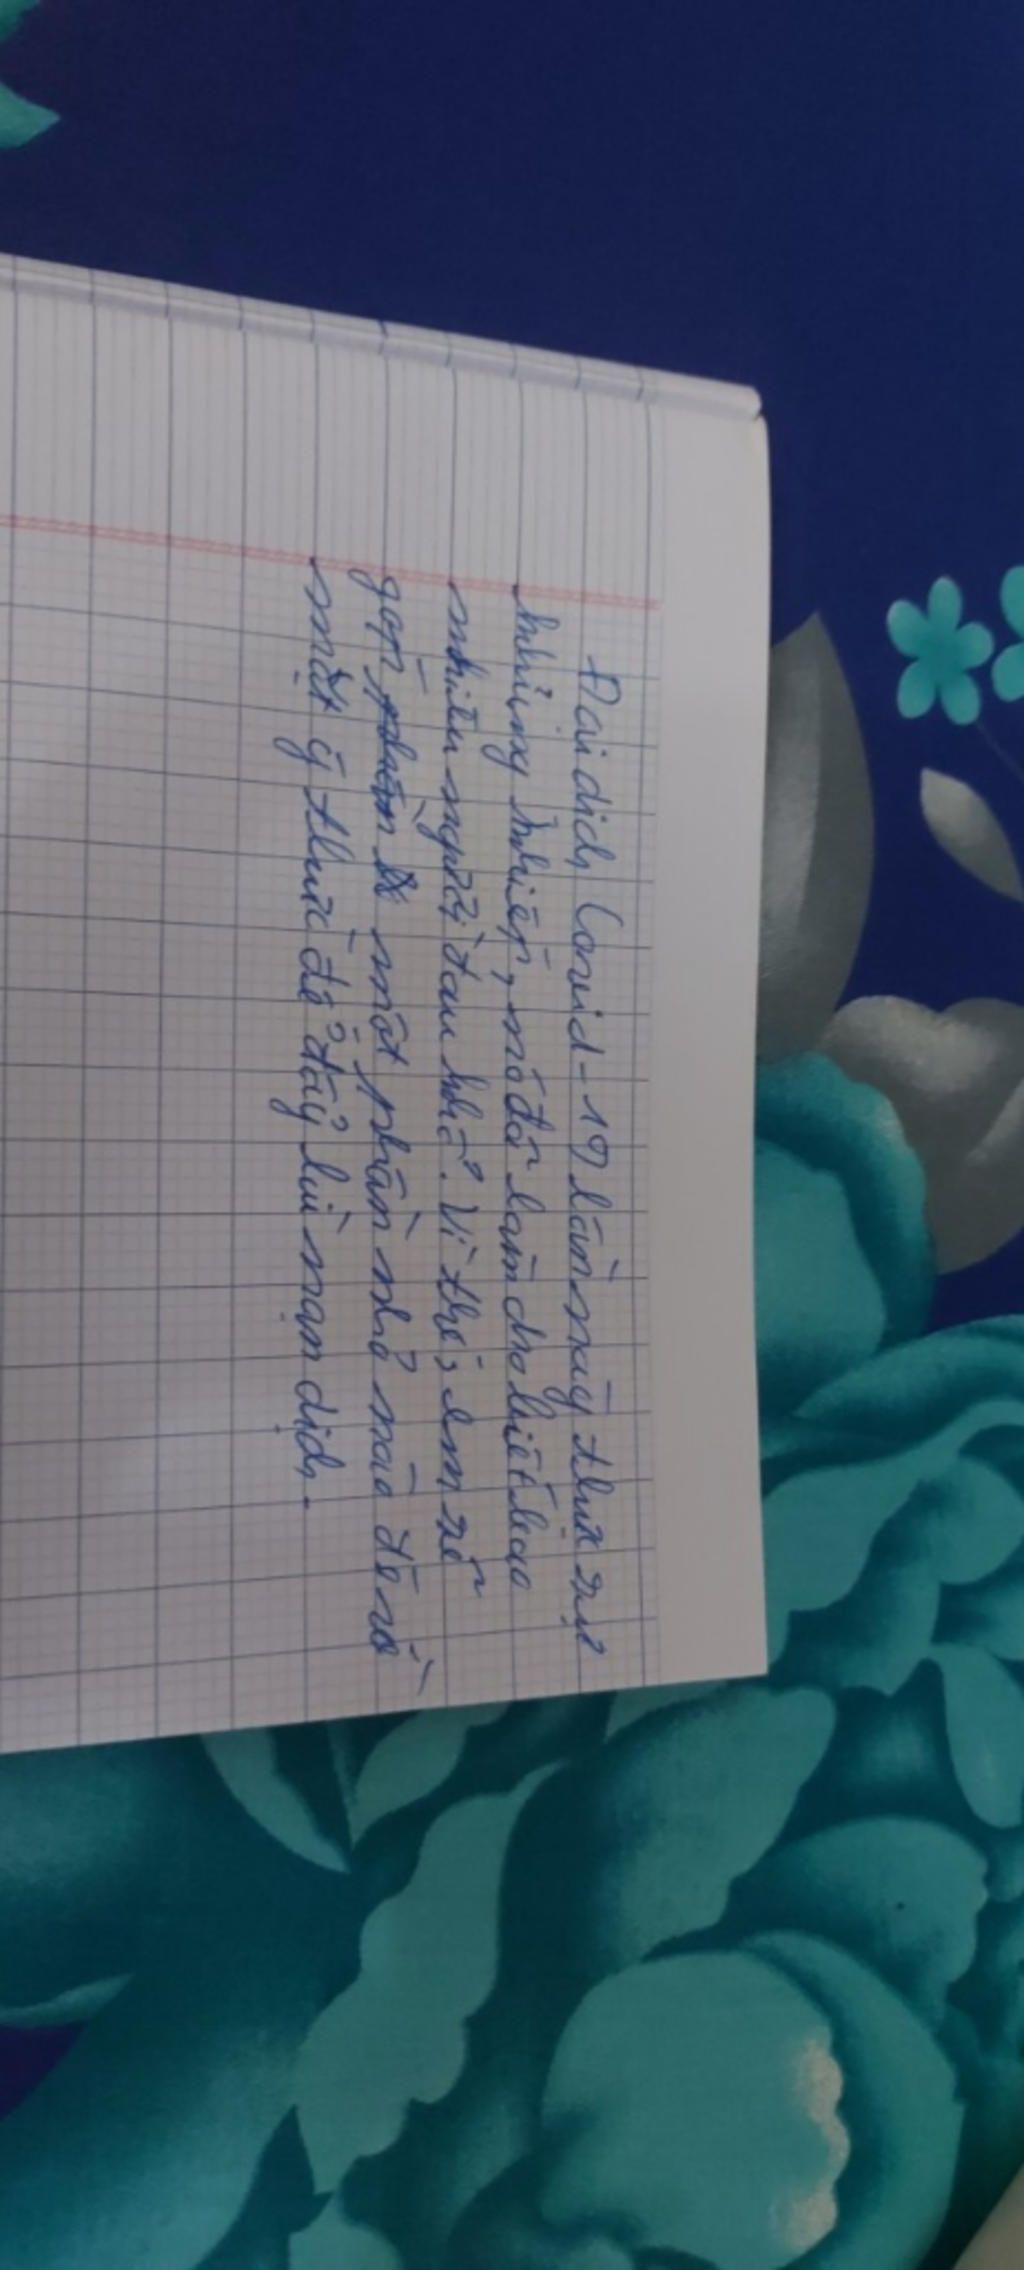 Đại dịch Covid-19 lần này thực sự
khủng khiếp, nó đã làm cho biết bao
nhiêu người đau khổ. Vì thế, em sẽ
góp phần một phần nhỏ nào đó về
mặt ý thức để đẩy lùi nạn dịch.